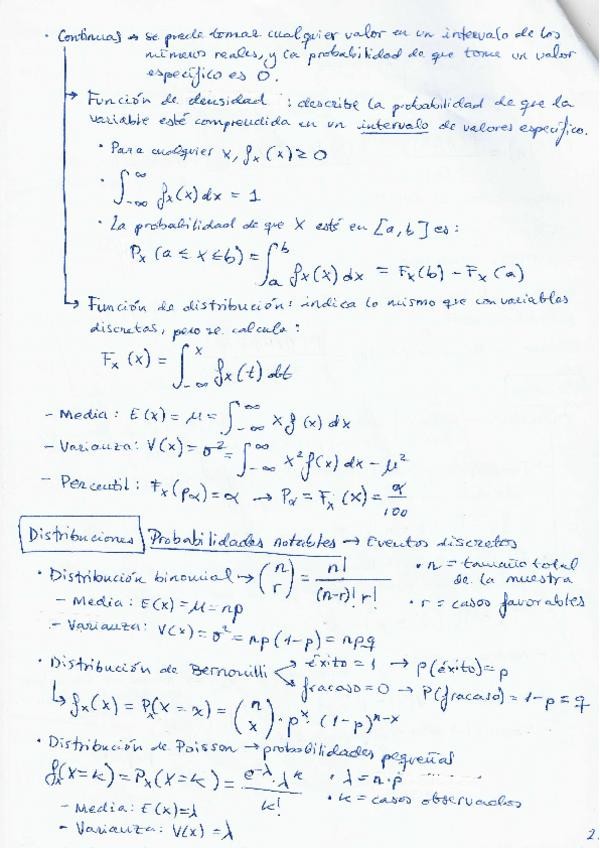 · Continuas → se puede tomar cualquier valor en un intervalo de los
números reales, y la probabilidad de que tome un valor
específico es 0.
→ Función de densidad : describe la probabilidad de que la
variable esté comprendida en un intervalo de valores específico.
· Para cualquier x, fx(x) ≥ 0
· ∫_{-∞}^{∞} fx(x) dx = 1
· La probabilidad de que X esté en [a,b] es:
Px (a ≤ x ≤ b) = ∫_a^b fx(x) dx = Fx(b) - Fx(a)
→ Función de distribución: indica lo mismo que con variables
discretas, pero se calcula :
Fx (x) = ∫_{-∞}^{x} fx(t) dt
- Media: E(x) = μ = ∫_{-∞}^{∞} x f(x) dx
- Varianza: V(x) = σ² = ∫_{-∞}^{∞} x² f(x) dx - μ²
- Percentil: Fx(pα) = α → Pα = Fx(x) = α/100
Distribuciones Probabilidades notables → Eventos discretos
· Distribución binomial → (n r) = n! / (n-r)! r! · n = tamaño total
de la muestra
- Media: E(x) = μ = np · r = casos favorables
- Varianza: V(x) = σ² = np(1-p) = npq
· Distribución de Bernouilli éxito = 1 → p(éxito) = p
fracaso = 0 → P(fracaso) = 1-p = q
↳ fx(x) = Px(X = x) = (n x) · p^x · (1-p)^{n-x}
· Distribución de Poisson → probabilidades pequeñas
fx(X=k) = Px(X=k) = e^{-λ} · λ^k / k! · λ = n·p
· k = casos observados
- Media: E(x) = λ
- Varianza: V(x) = λ
2